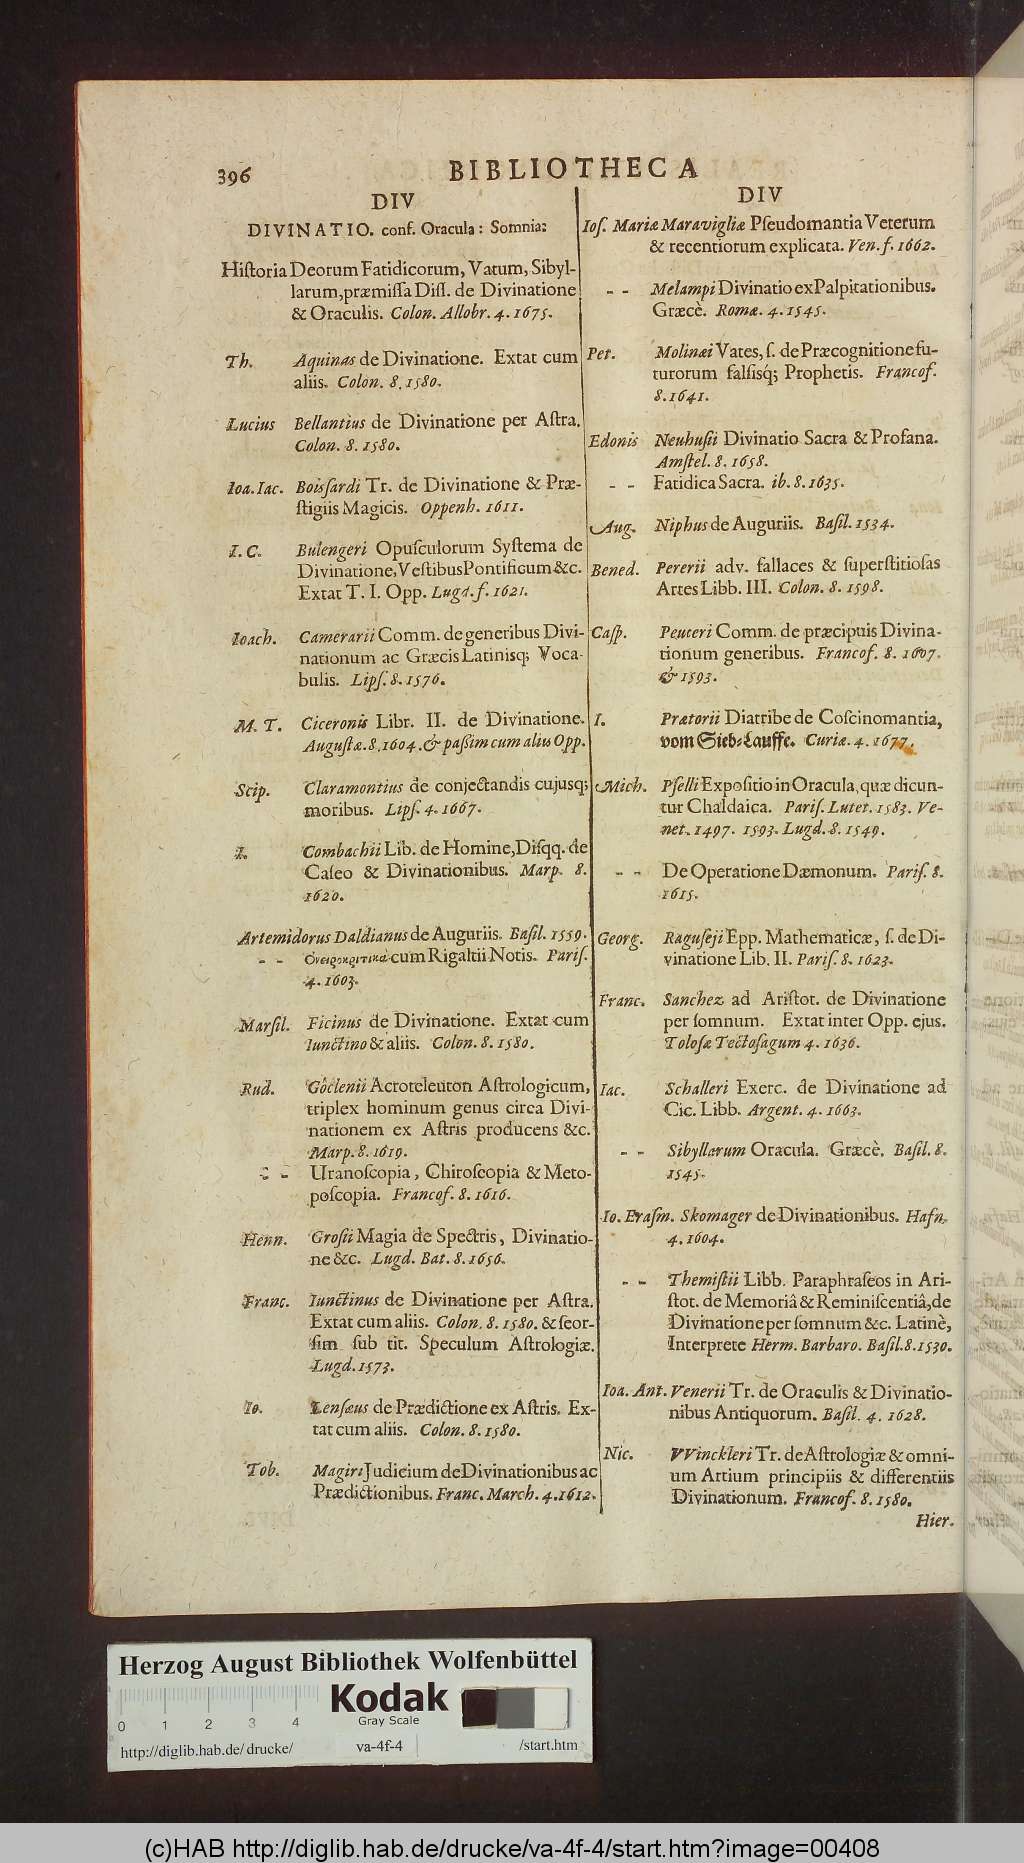 396 BIBLIOTHECA
DIV
DIVINATIO. conf. Oracula: Somnia:
Hiſtoria Deorum Fatidicorum, Vatum, Sibyl-
larum, præmiſſa Diſſ. de Divinatione
& Oraculis. Colon. Allobr. 4. 1675.
Th. Aquinas de Divinatione. Extat cum
aliis. Colon. 8. 1580.
Lucius Bellantius de Divinatione per Aſtra.
Colon. 8. 1580.
Ioa. Iac. Boisſardi Tr. de Divinatione & Præ-
ſtigiis Magicis. Oppenh. 1611.
I. C. Bulengeri Opuſculorum Syſtema de
Divinatione, Veſtibus Pontificum &c.
Extat T. I. Opp. Lugd. f. 1621.
Ioach. Camerarii Comm. de generibus Divi-
nationum ac Græcis Latinisq; Voca-
bulis. Lipſ. 8. 1576.
M. T. Ciceronis Libr. II. de Divinatione.
Auguſtæ. 8. 1604. & paßim cum aliis Opp.
Scip. Claramontius de conjectandis cujusq;
moribus. Lipſ. 4. 1667.
I. Combachii Lib. de Homine, Diſqq. de
Caſeo & Divinationibus. Marp. 8.
1620.
Artemidorus Daldianus de Auguriis. Baſil. 1559.
- - Ονειροκριτικὰ cum Rigaltii Notis. Pariſ.
4. 1603.
Marſil. Ficinus de Divinatione. Extat cum
Iunctino & aliis. Colon. 8. 1580.
Rud. Goclenii Acroteleuton Aſtrologicum,
triplex hominum genus circa Divi-
nationem ex Aſtris producens &c.
Marp. 8. 1619.
- - Uranoſcopia, Chiroſcopia & Meto-
poſcopia. Francof. 8. 1616.
Henn. Groſii Magia de Spectris, Divinatio-
ne &c. Lugd. Bat. 8. 1656.
Franc. Iunctinus de Divinatione per Aſtra.
Extat cum aliis. Colon. 8. 1580. & ſeor-
ſim ſub tit. Speculum Aſtrologiæ.
Lugd. 1573.
Io. Lenſæus de Prædictione ex Aſtris. Ex-
tat cum aliis. Colon. 8. 1580.
Tob. Magiri Judicium de Divinationibus ac
Prædictionibus. Franc. March. 4. 1612.
DIV
Ioſ. Mariæ Maravigliæ Pſeudomantia Veterum
& recentiorum explicata. Ven. f. 1662.
- - Melampi Divinatio ex Palpitationibus.
Græcè. Romæ. 4. 1545.
Pet. Molinæi Vates, ſ. de Præcognitione fu-
turorum falſisq; Prophetis. Francof.
8. 1641.
Edonis Neuhuſii Divinatio Sacra & Profana.
Amſtel. 8. 1658.
- - Fatidica Sacra. ib. 8. 1635.
Aug. Niphus de Auguriis. Baſil. 1534.
Bened. Pererii adv. fallaces & ſuperſtitioſas
Artes Libb. III. Colon. 8. 1598.
Caſp. Peuceri Comm. de præcipuis Divina-
tionum generibus. Francof. 8. 1607.
& 1593.
I. Prætorii Diatribe de Coſcinomantia,
vom Sieb-Lauffe. Curiæ. 4. 1677.
Mich. Pſelli Expoſitio in Oracula, quæ dicun-
tur Chaldaica. Pariſ. Lutet. 1583. Ve-
net. 1497. 1593. Lugd. 8. 1549.
- - De Operatione Dæmonum. Pariſ. 8.
1615.
Georg. Raguſeji Epp. Mathematicæ, ſ. de Di-
vinatione Lib. II. Pariſ. 8. 1623.
Franc. Sanchez ad Ariſtot. de Divinatione
per ſomnum. Extat inter Opp. ejus.
Toloſæ Tectoſagum 4. 1636.
Iac. Schalleri Exerc. de Divinatione ad
Cic. Libb. Argent. 4. 1663.
- - Sibyllarum Oracula. Græcè. Baſil. 8.
1545.
Io. Eraſm. Skomager de Divinationibus. Hafn.
4. 1604.
- - Themiſtii Libb. Paraphraſeos in Ari-
ſtot. de Memoriâ & Reminiſcentiâ, de
Divinatione per ſomnum &c. Latinè,
Interprete Herm. Barbaro. Baſil. 8. 1530.
Ioa. Ant. Venerii Tr. de Oraculis & Divinatio-
nibus Antiquorum. Baſil. 4. 1628.
Nic. VVinckleri Tr. de Aſtrologiæ & omni-
um Artium principiis & differentiis
Divinationum. Francof. 8. 1580.
Hier.
Herzog August Bibliothek Wolfenbüttel
Kodak
Gray Scale
0 1 2 3 4
http://diglib.hab.de/drucke/ va-4f-4 /start.htm
(c)HAB http://diglib.hab.de/drucke/va-4f-4/start.htm?image=00408